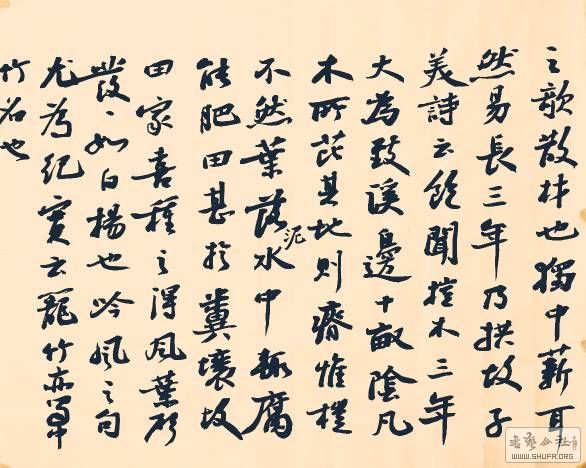 之欹散材也獨中薪耳
然易長三年乃拱故子
美詩云飽聞榿木三年
大為致溪邊十畝陰凡
木所芘其地則瘠惟榿
不然葉落泥水中輒腐
能肥田甚於糞壤故
田家喜種之得風葉聲
發、如白楊也吟風之句
尤為紀實云籠竹亦蜀中
竹名也
書藝公社
WWW.SHUFA.ORG